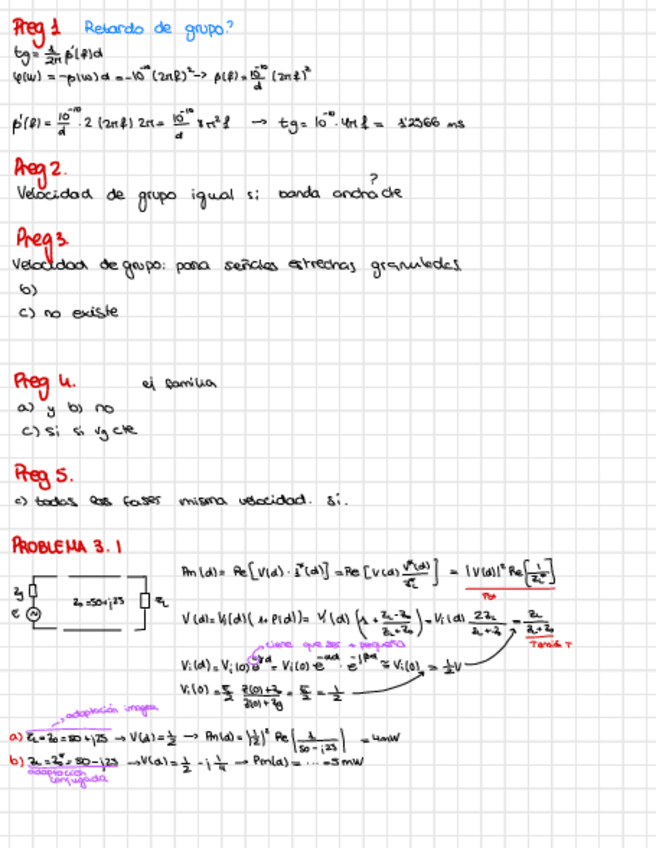 Preg 1 Retardo de grupo?
tg = 1/2π β'(f)d
φ(w) = -β(w)d = -10^-10 (2πf)^2 -> β(f) = 10^-10/d (2πf)^2
β'(f) = 10^-10/d · 2 (2πf) 2π = 10^-10/d 8π^2f -> tg = 10^-10 · 4πf = 1'2566 ms
Preg 2.
?
Velocidad de grupo igual si banda ancha cte
Preg 3.
Velocidad de grupo: para señales estrechas
b)
c) no existe
Preg 4. ej familia
a) y b) no
c) si si vg cte
Preg 5.
c) todas las fases misma velocidad. Sí.
PROBLEMA 3.1
Pm(d) = Re[V(d) · I*(d)] = Re[V(d) V*(d)/ZL*] = |V(d)|² Re[1/ZL*]
Pot
Zg
e
Z0 = 50+j25
ZL
V(d) = Vi(d)(1+ρ(d)) = Vi(d) (1 + ZL-Z0/ZL+Z0) = Vi(d) 2ZL/ZL+Z0 = ZL/ZL+Z0
Tensión T
tiene que ser + pequeño
Vi(d) = Vi(0) e^-γd = Vi(0) e^-αd · e^-jβd ≅ Vi(0) = 1/2 V
= 1/2
adaptación imagen
a) ZL = Z0 = 50+j25 -> V(d) = 1/2 -> Pm(d) = |1/2|² Re[1/50-j25] = 4mW
b) ZL = Z0* = 50-j25 -> V(d) = 1/2 - j 1/4 -> Pm(d) = ... = 5mW
adaptación
conjugada